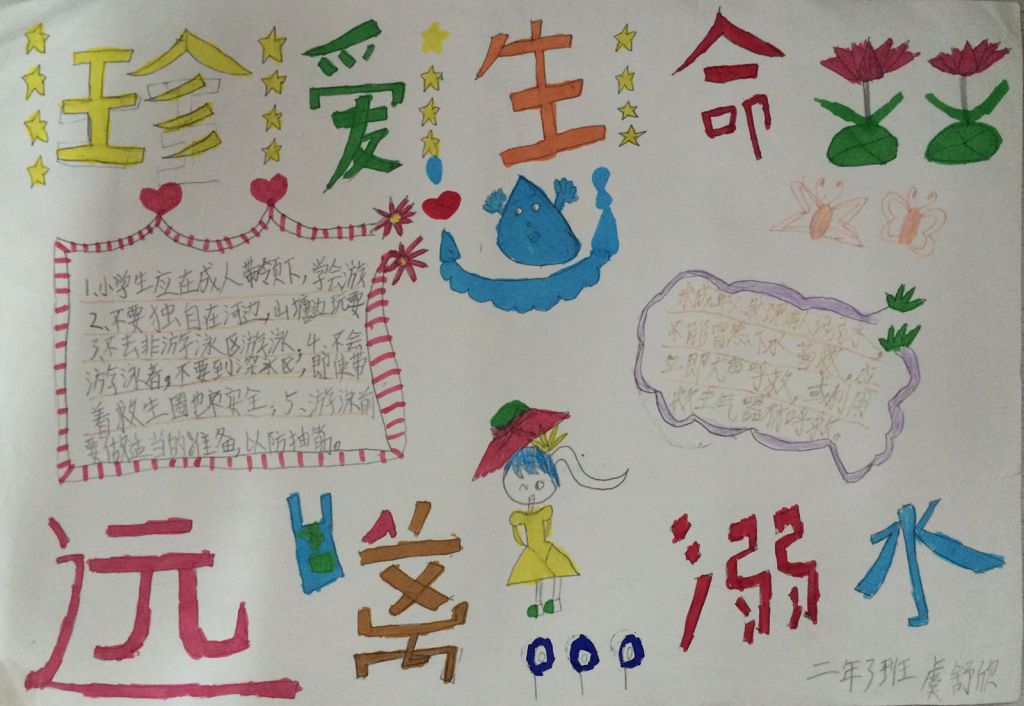 珍爱生命
1.小学生应在成人带领下,学会游
2.不要独自在河边,山塘边玩耍
3.不去非游泳区游泳;4.不会
游泳者,不要到深水区,即使带
着救生圈也不安全;5、游泳前
要做适当的准备,以防抽筋。
不能冒然下水营救,应
立即大声呼救,或利用
救生器材呼救。
远离溺水
二年3班 虞舒欣